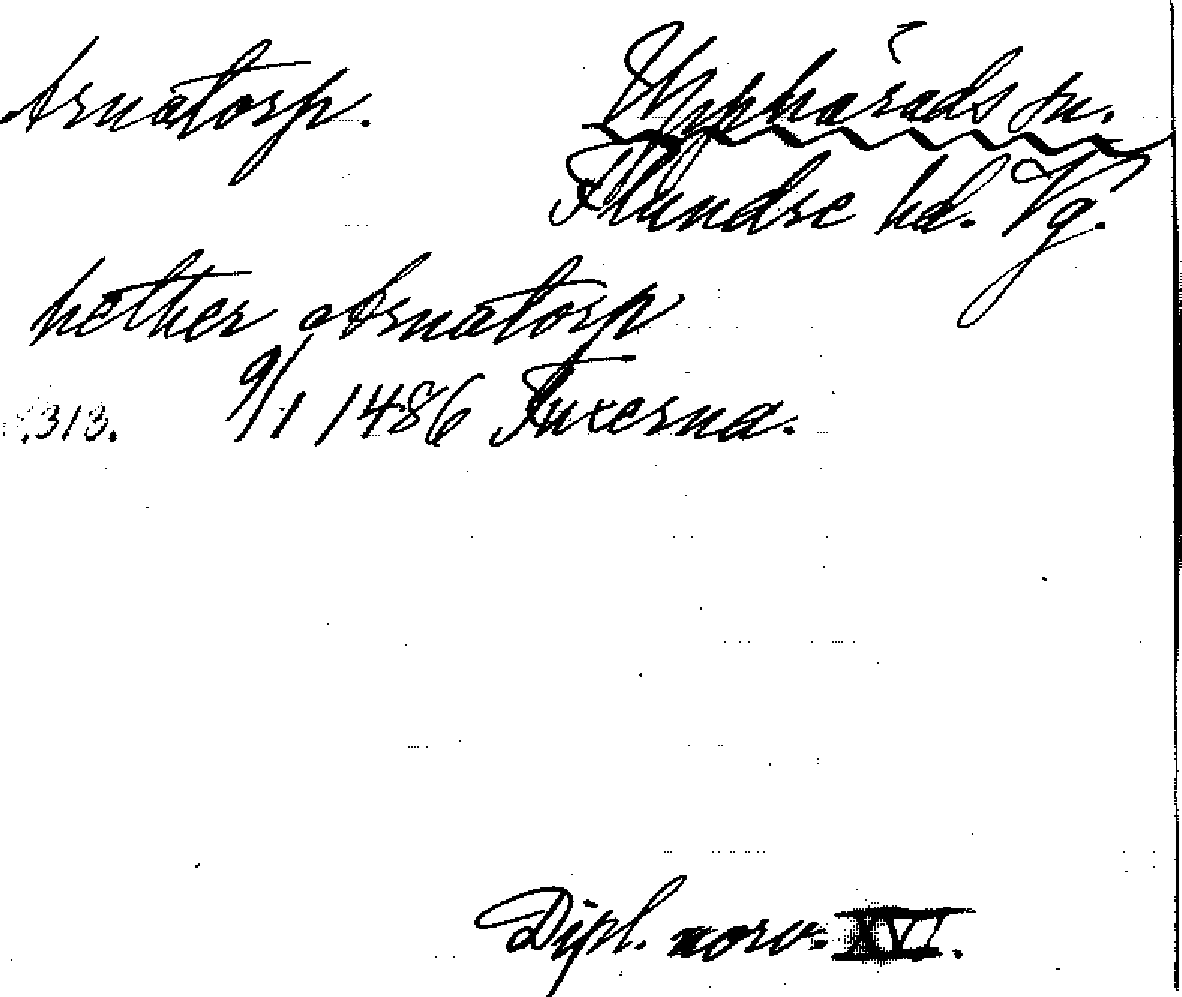 Arnatorp.
Upphärads sn.
Flundre hd. Vg.
hether Arnatorp
.313. 9/1 1486 Fuxerna.
Dipl. norv. XVI.